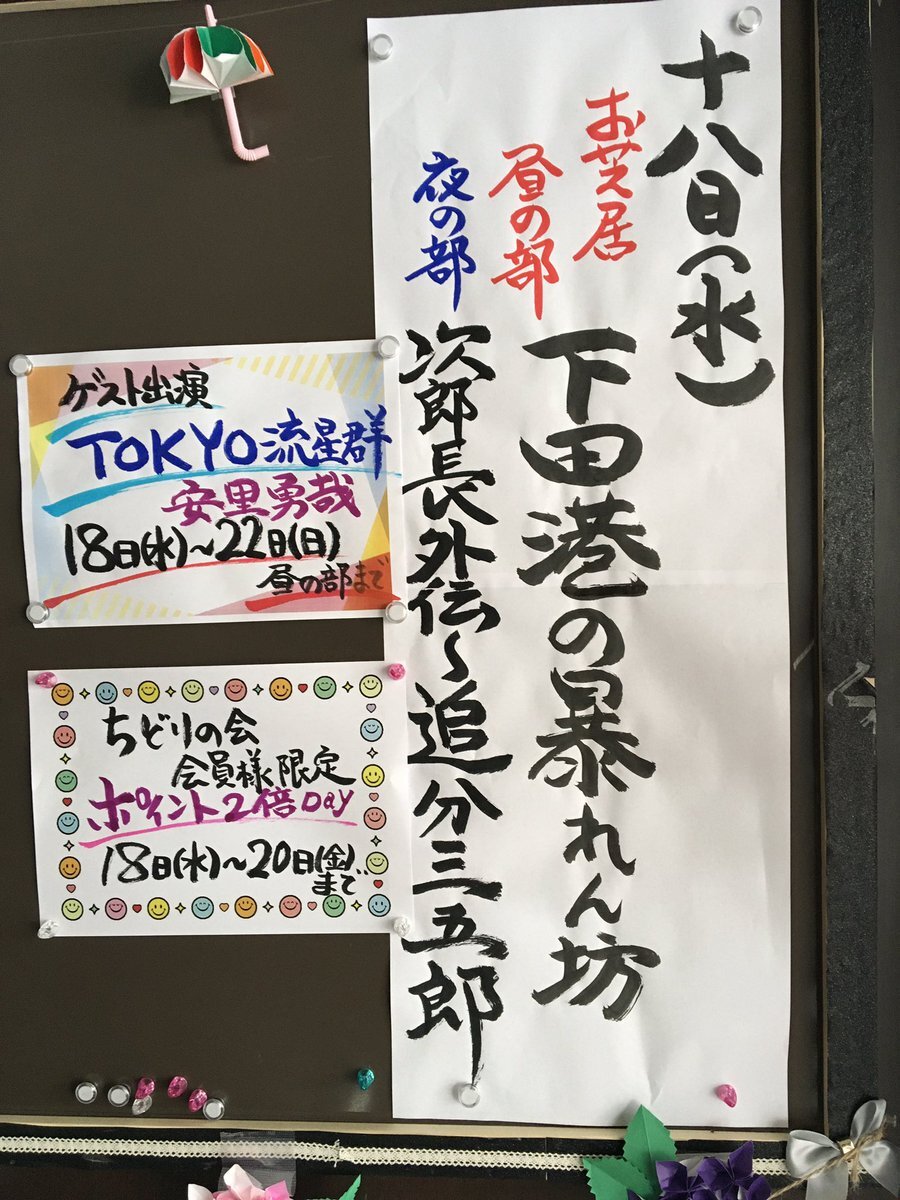 十八日(水)
お芝居
昼の部
下田港の暴れん坊
夜の部
次郎長外伝~追分三五郎
ゲスト出演
TOKYO流星群
安里勇哉
18日(水)~22日(日)
昼の部まで
ちどりの会
会員様限定
ポイント2倍Day
18日(水)~20日(金)
まで